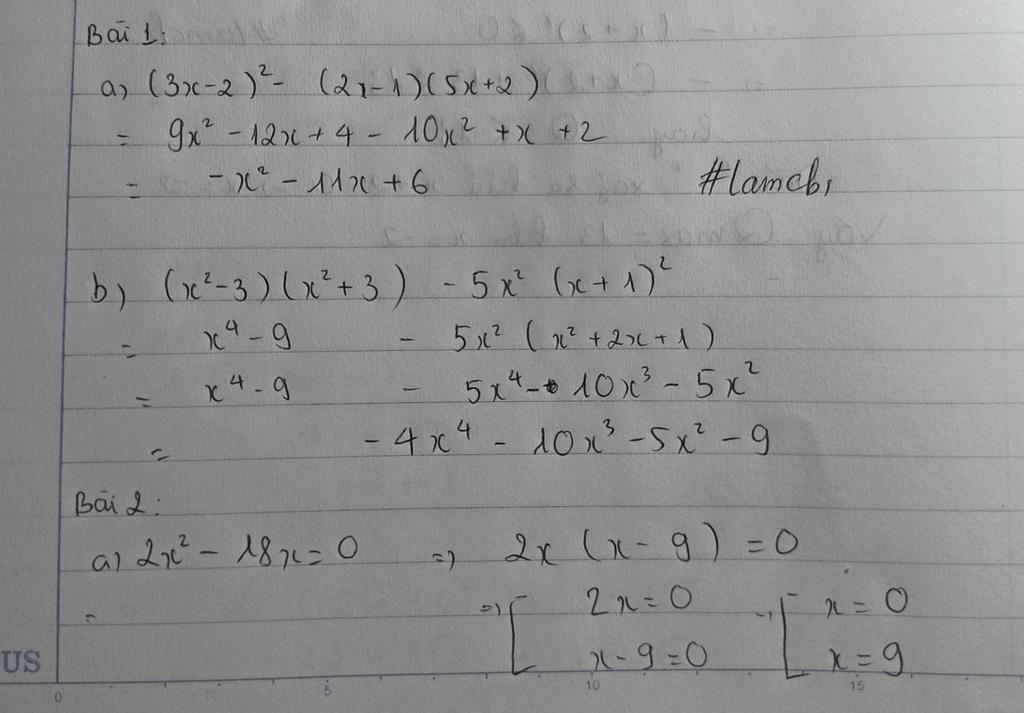 Bài 1:
a) (3x-2)² - (2x-1)(5x+2)
= 9x² - 12x + 4 - 10x² + x + 2
= -x² - 11x + 6 #lamcb,
b) (x²-3)(x²+3) - 5x² (x+1)²
= x⁴ - 9 - 5x² (x² + 2x + 1)
= x⁴ - 9 - 5x⁴ - 10x³ - 5x²
= - 4x⁴ - 10x³ - 5x² - 9
Bài 2:
a) 2x² - 18x = 0 => 2x (x - 9) = 0
= => [ 2x = 0 => [ x = 0
x - 9 = 0 x = 9
US
0 5 10 15